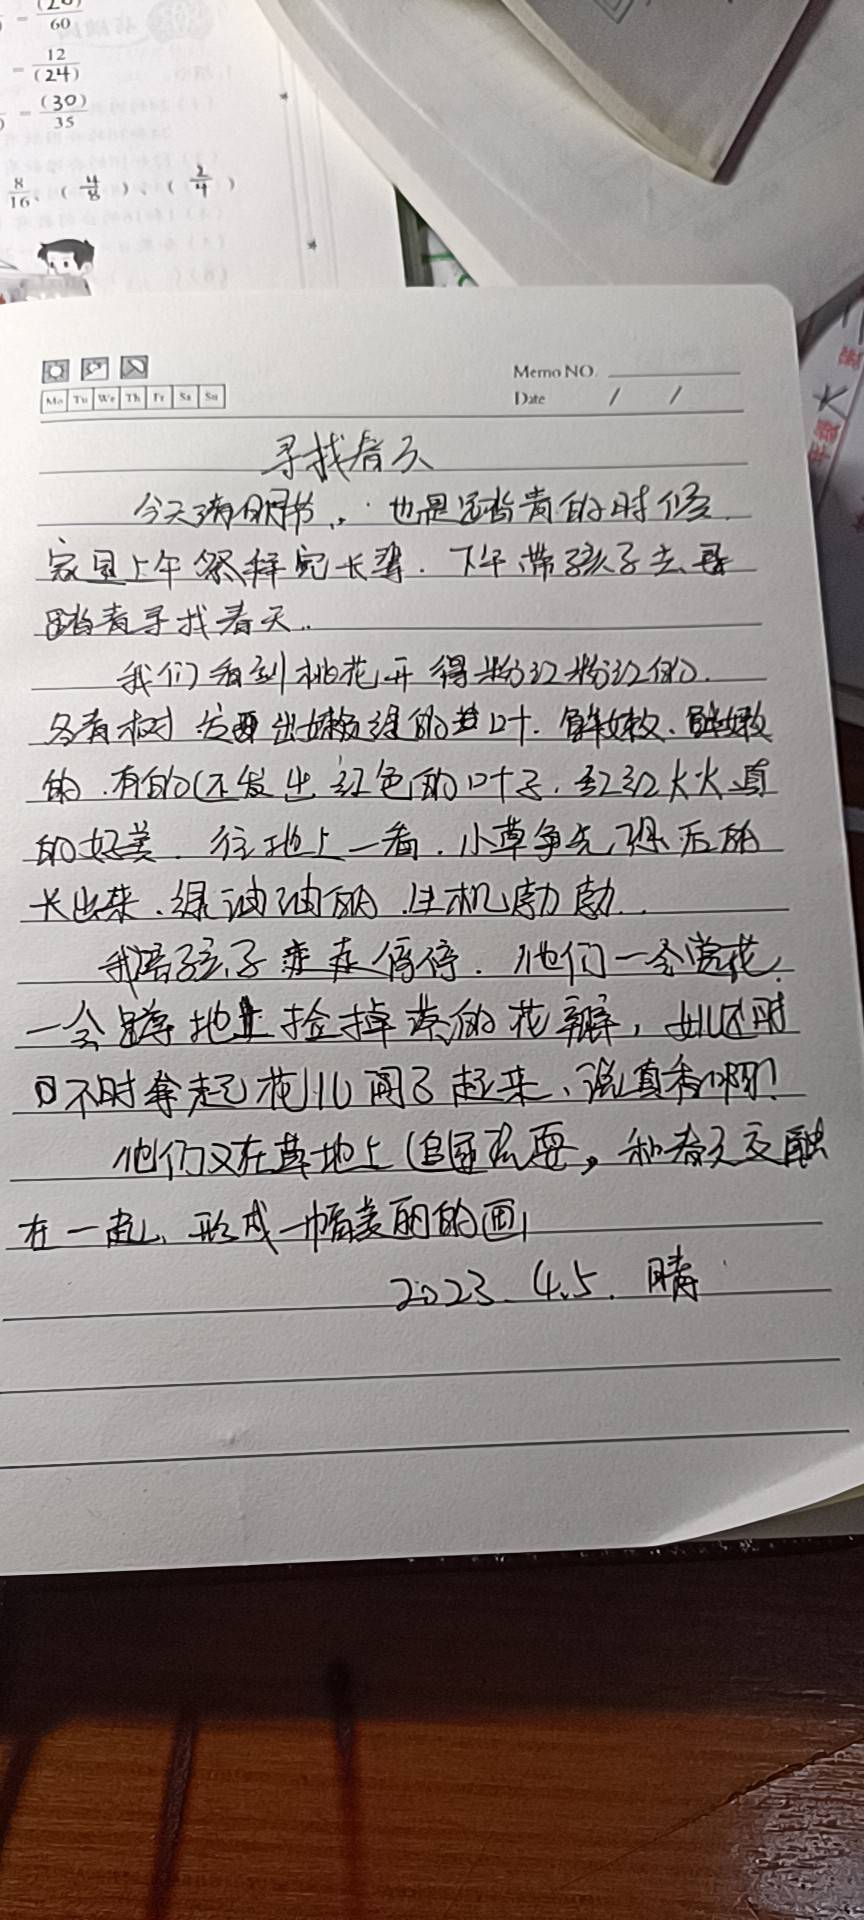 60
= 12/(24)
= (30)/35
8/16、( 4/8 )、( 2/4 )
Memo NO.
Mo Tu We Th Fr Sa Su
Date / /
寻找春天
今天清明节, 也是踏青的时候.
上午祭拜完长辈. 下午带孩子去
踏青寻找春天..
我们看到桃花开得粉红粉红的.
各青树发出嫩绿的叶. 鲜嫩、鲜嫩
的.有的还发出红色的叶子.红红火火真
的好美.往地上一看.小草争先恐后的
长出来.绿油油的.生机勃勃..
我陪孩子走走停停.他们一会赏花.
一会蹲地上捡掉落的花瓣,
不时拿起花儿闻了起来、说真香啊!
他们又在草地上追逐玩耍,和春天交融
在一起、形成一幅美丽的画
2023.4.5.晴